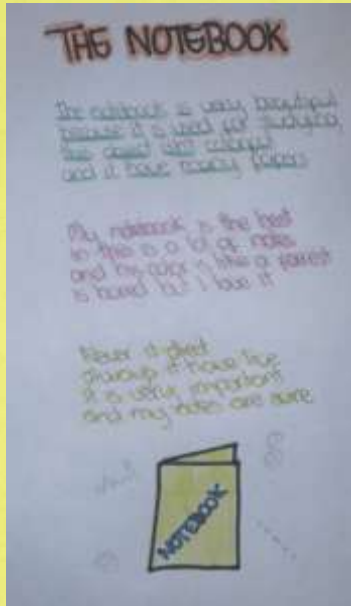 THE NOTEBOOK
The notebook is very beautiful
because it is used for studying,
this object isn't colorful
and it have many papers
My notebook is the best
in this is a lot of notes
and his color is like a forrest
is bored but I love it
Never it died
always it have live
it is very important
and my notes are
NOTEBOOK